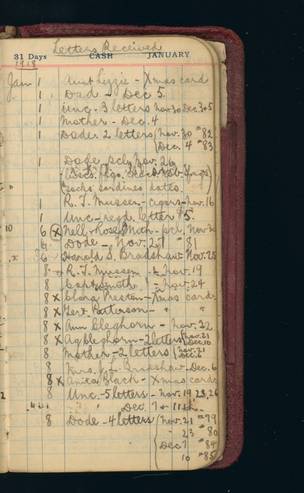 Letters Received
31 Days CASH JANUARY
1918
Jan 1 Aunt Lizzie - Xmas card
1 Dad - Dec 5.
1 Unc. 3 letters Nov 30 Dec 3 & 5
1 Mother - Dec. 4
1 Dode 2 letters (Nov. 30 # 82
(Dec. 4 # 83
1 Dode - pclg Nov. 26
sardines dates
1 R. F. Musser - cigars - Nov. 16
1 Unc - regd. letter # 5.
6 X Nell & Rose - pcl, Nov 20
6 Dode - Nov. 27 # 81
6 Harold S. Bradshaw - Nov. 28
8 R. F. Musser - 1 - Nov. 19
8 Capt Smith - 1 - Nov. 24
8 X Clara Weston - Xmas cards
8 X Gert Patterson - " "
8 X Ann Cleghorn - Nov. 22
8 X Ag Cleghorn - 2 letters (Nov. 21 Dec. 10
8 Mother - 2 letters (Nov. 21 Dec. 6
8 Mrs. Bradshaw - Dec. 6
8 X Anita Blach - Xmas cards
8 Unc - 5 letters - Nov. 19, 23, 26
Dec. 7 & 11th
8 Dode - 4 letters (Nov. 21 # 79
23 # 80
(Dec 7 # 84
10 # 85